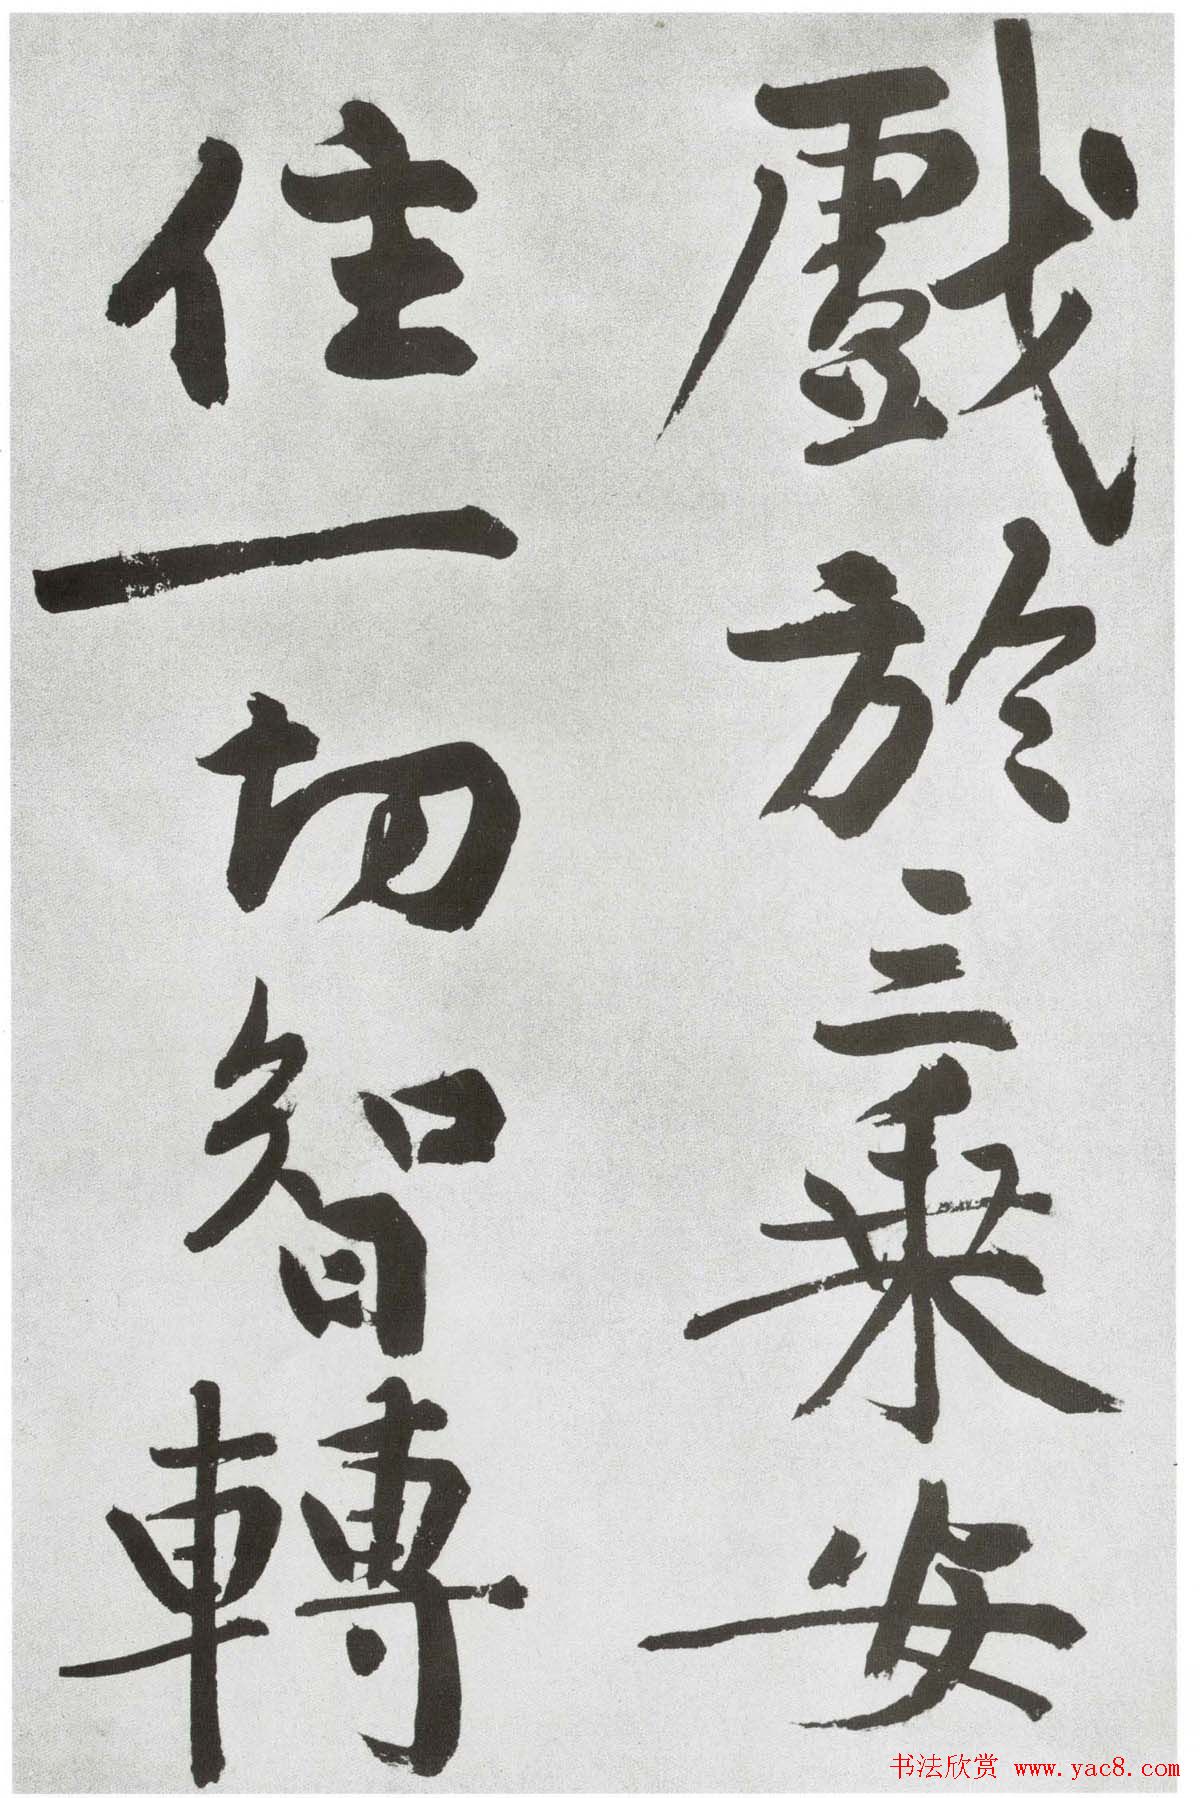 戲於三乗安
住一切智轉
书法欣赏 www.yac8.com